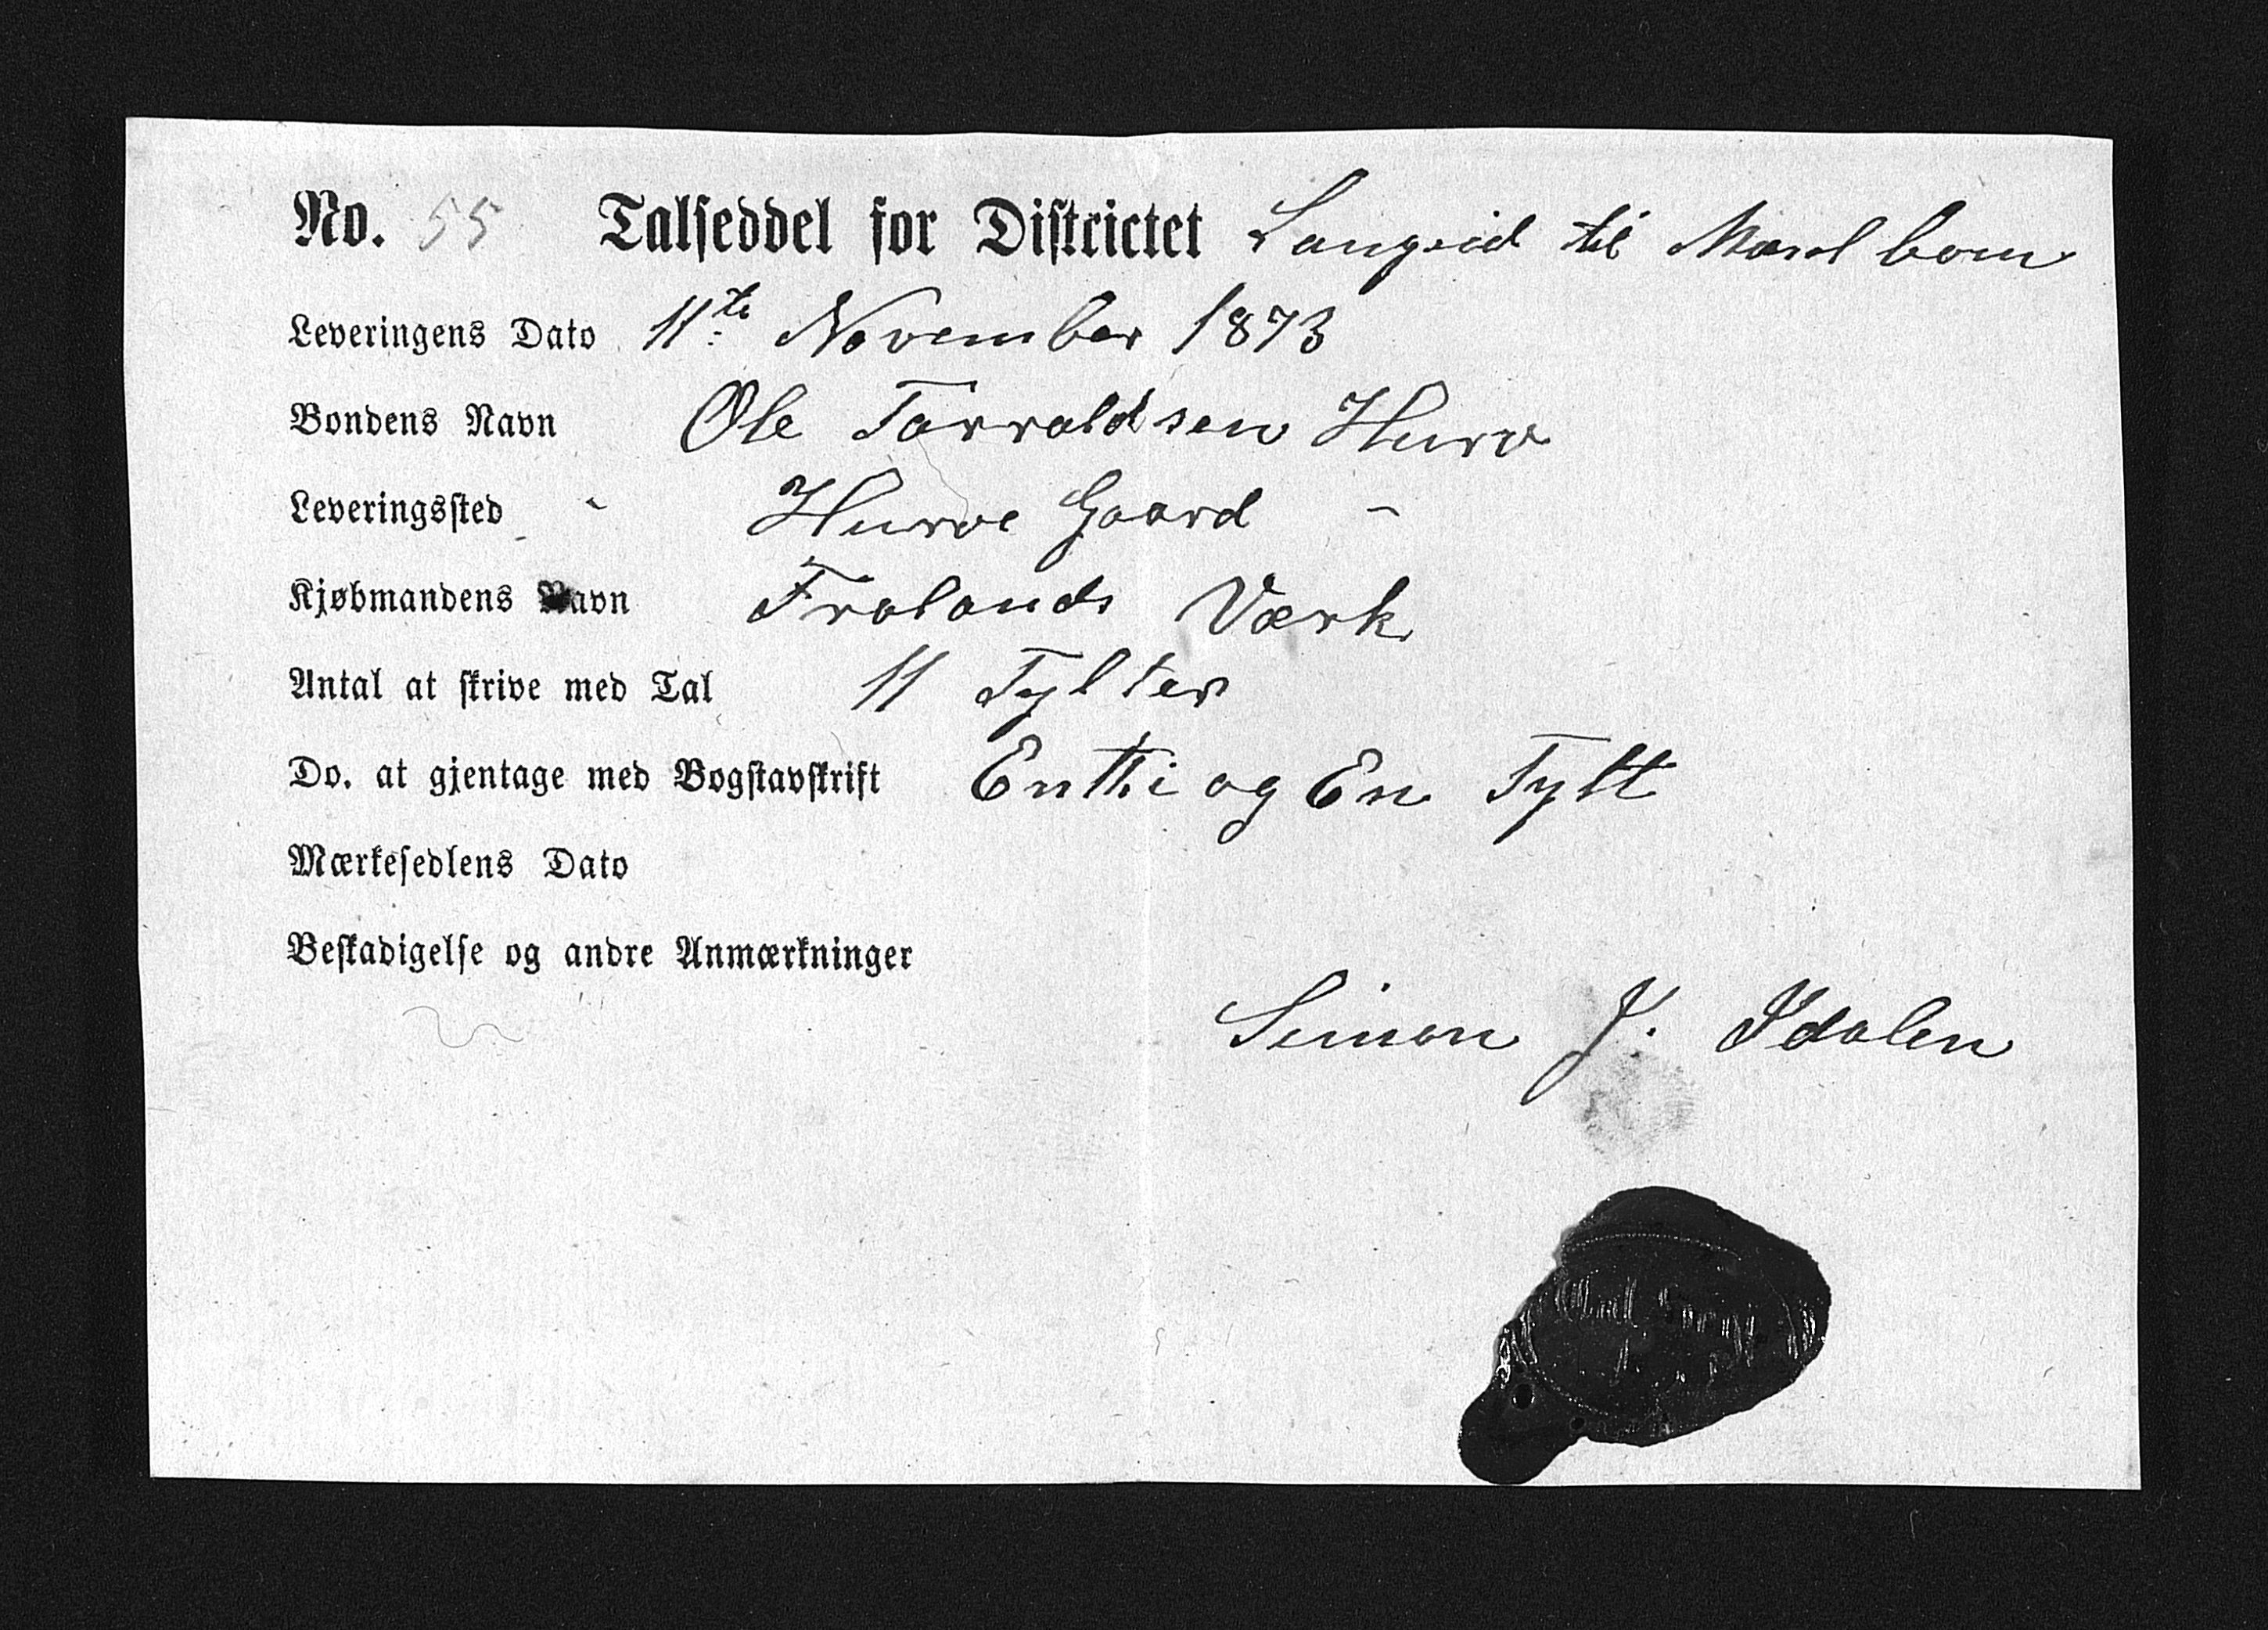 No. 55 Talseddel for Districtet Langeid til
Leveringens Dato 11te November 1873
Bondens Navn Ole Tarraldsen Hurv
Leveringssted - Hurve Gaard -
Kjøbmandens Navn Frolands Værk
Antal at skrive med Tal 11 Tylter
Do. at gjentage med Bogstavskrift En ti og En Tylt
Mærkesedlens Dato
Beskadigelse og andre Anmærkninger
Simon J. Idalen